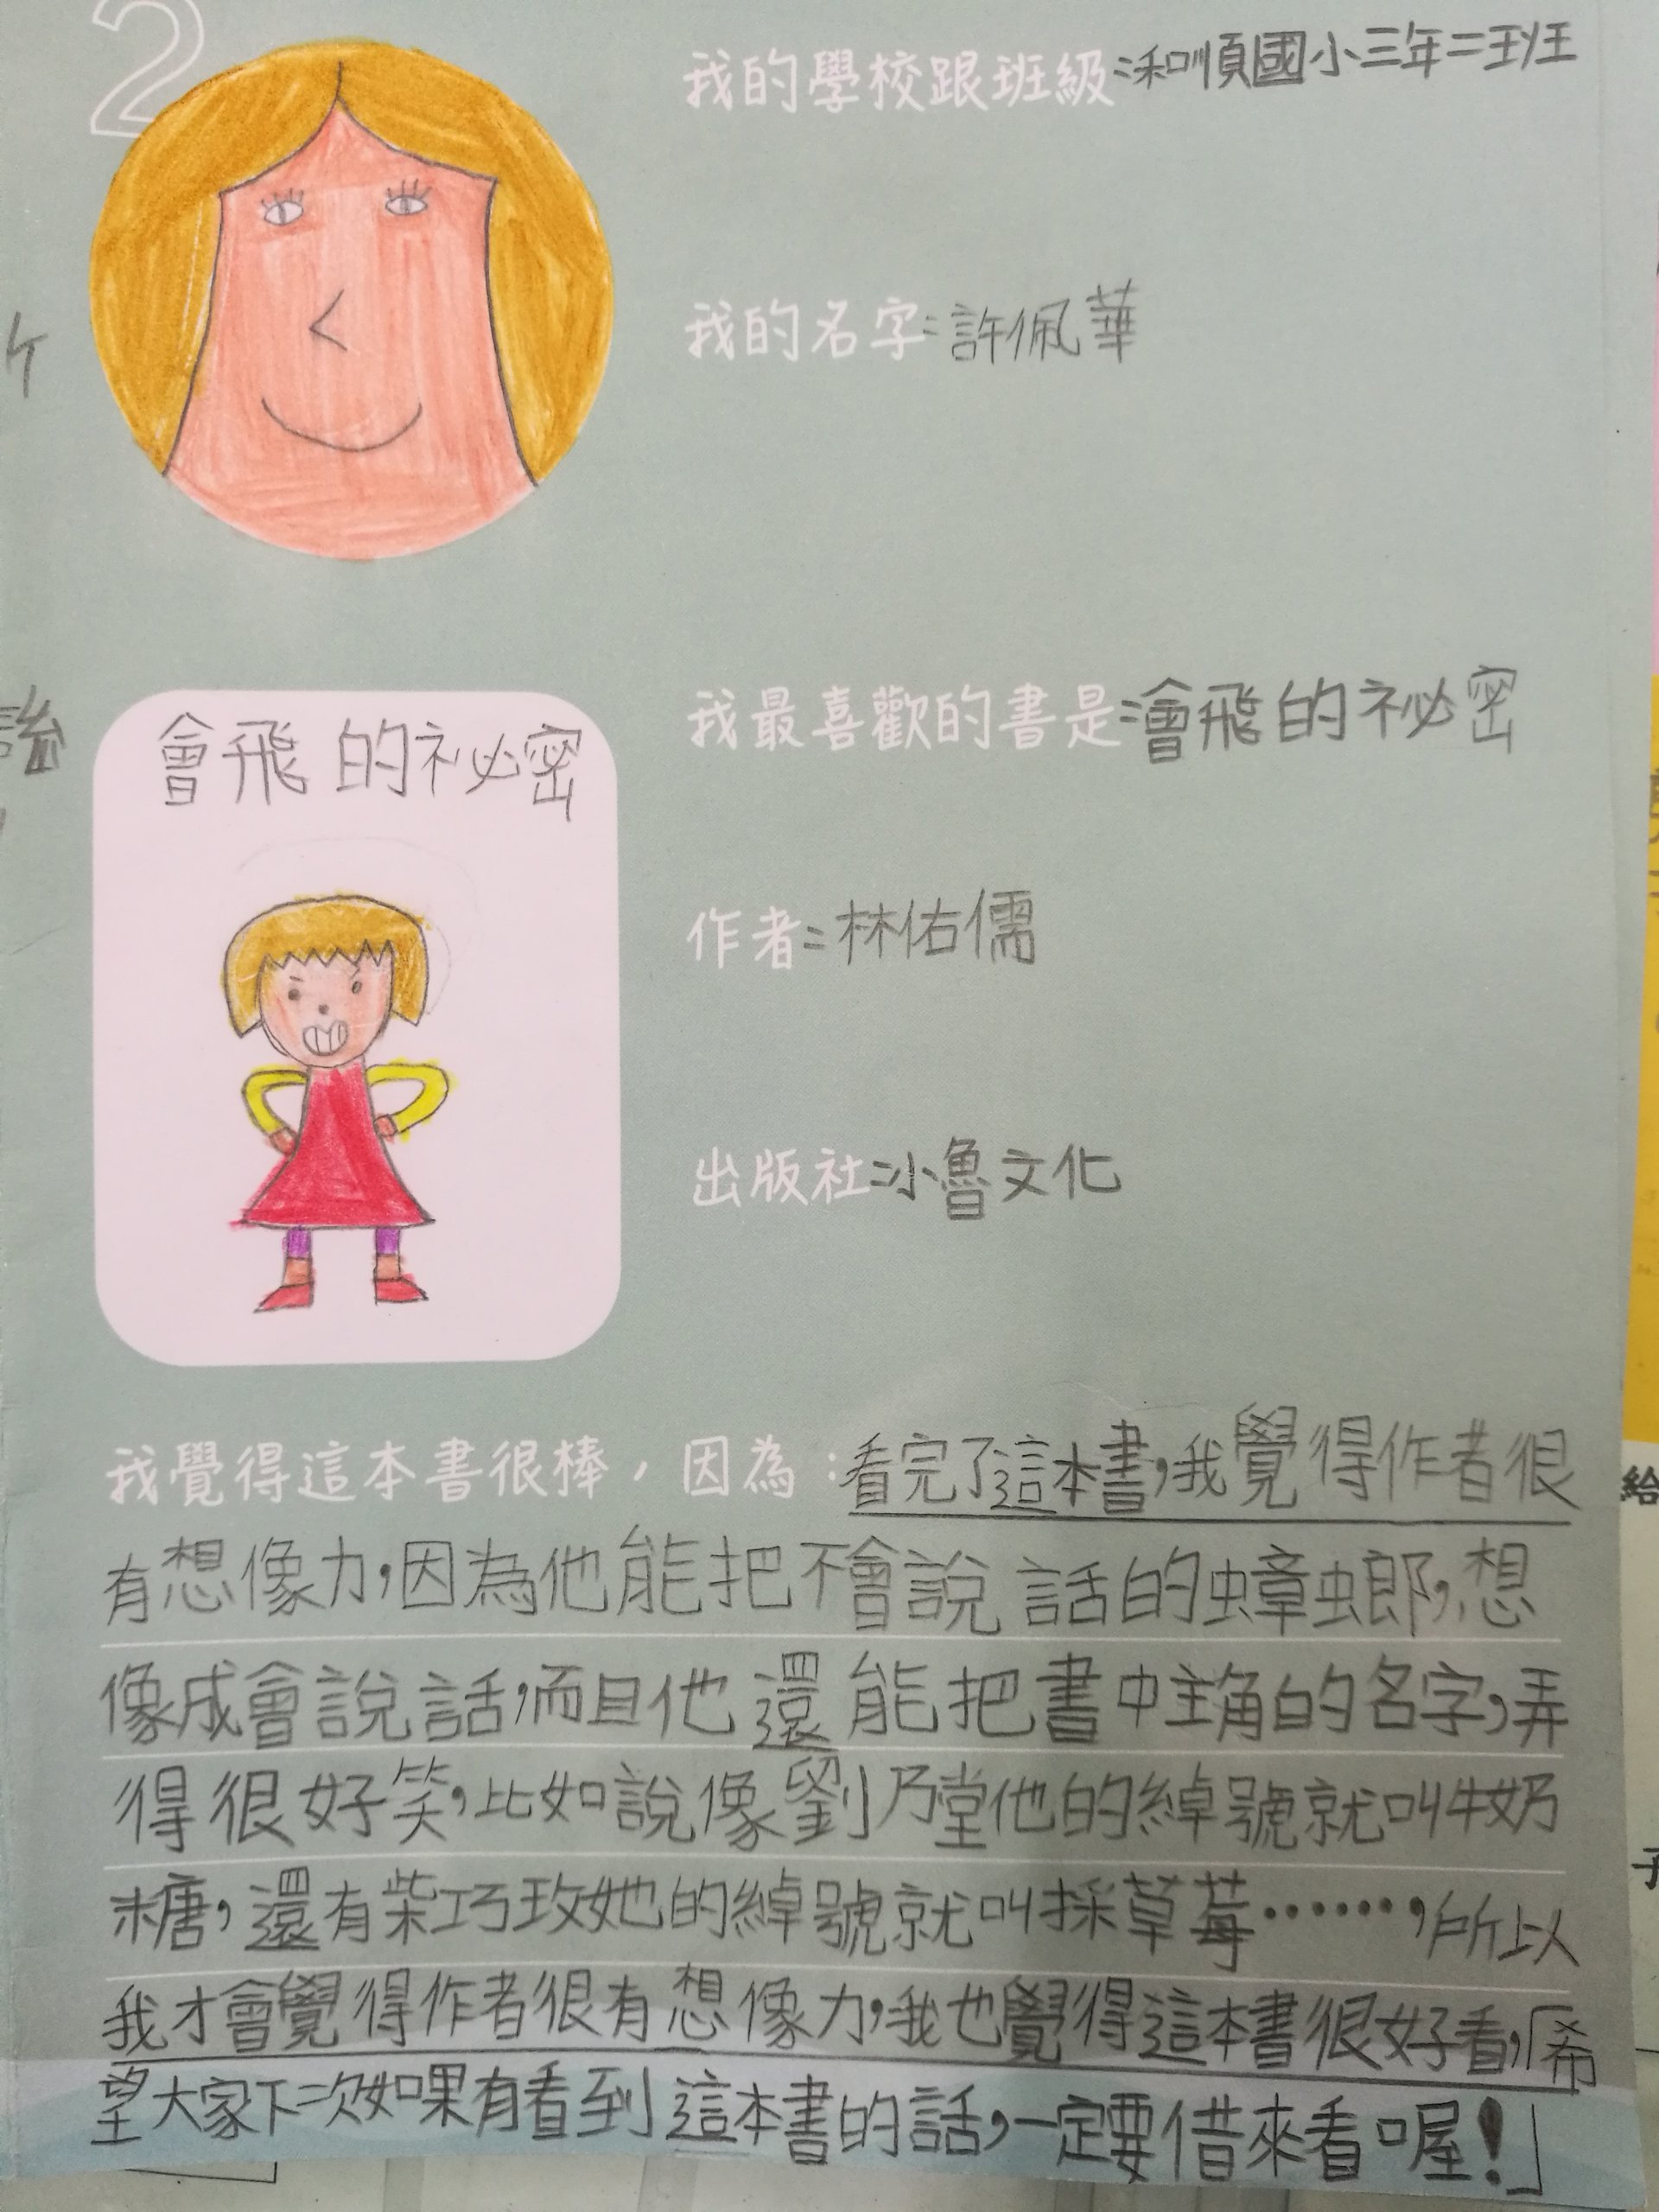 2
我的學校跟班級:和順國小三年二班
我的名字:許佩華
會飛的祕密
我最喜歡的書是:會飛的祕密
作者:林佑儒
出版社:小魯文化
我覺得這本書很棒,因為:看完了這本書,我覺得作者很
有想像力,因為他能把不會說話的蟑螂,想
像成會說話,而且他還能把書中主角的名字,弄
得很好笑,比如說像劉乃堂他的綽號就叫牛奶
糖,還有柴巧玫她的綽號就叫採草莓……,所以
我才會覺得作者很有想像力,我也覺得這本書很好看,「希
望大家下次如果有看到這本書的話,一定要借來看喔!」
給
子